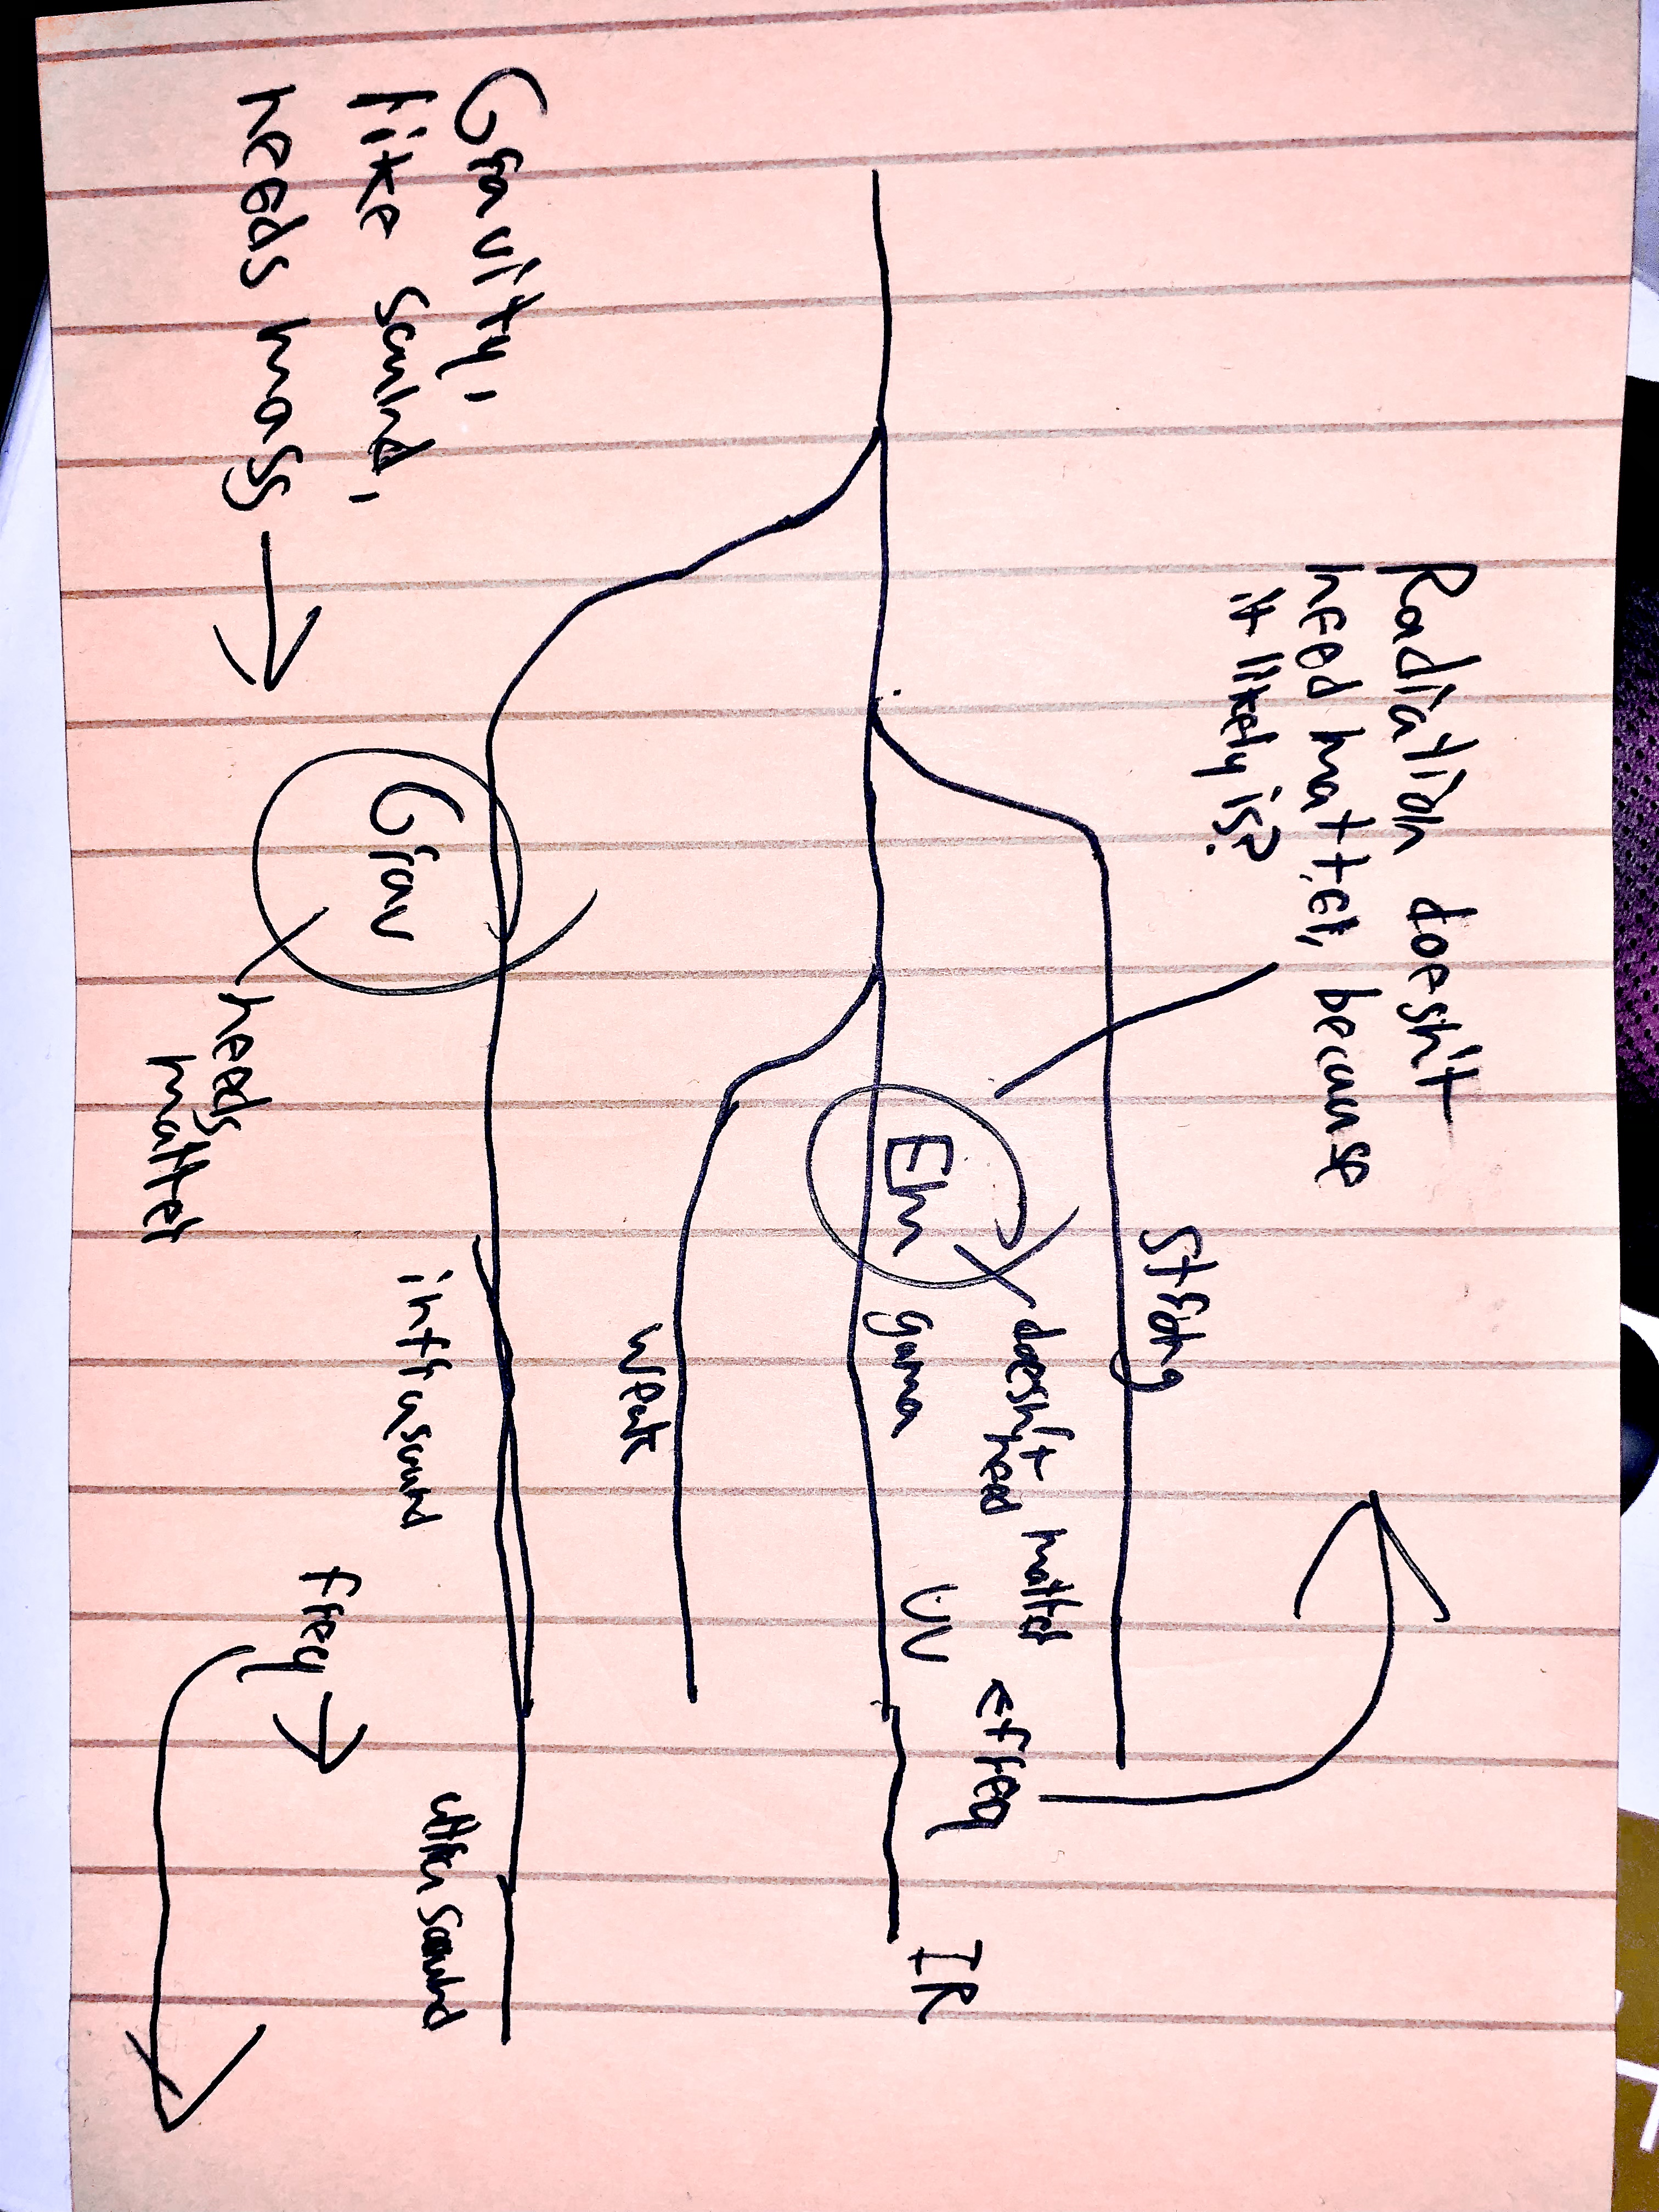 Radiation doesn't
need matter, because
it likely is?
Strong
doesn't need matter
← freq
Em
gama
UV
IR
weak
Gravity,
like sound,
needs mass →
Grav
needs
matter
infrasound
ultrasound
freq →